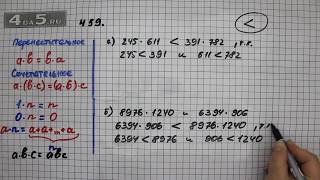 4a5a.ru
459.
<
Переместительное
a·b = b·a
Сочетательное
a·(b·c) = (a·b)·c
1·n = n
0·n = 0
a·n = a+a+...+a
n
a·b·c = abc
а) 245·611 < 391·782, т.к.
245 < 391 и 611 < 782
б) 8976·1240 и 6394·906
6394·906 < 8976·1240, т.к.
6394 < 8976 и 906 < 1240